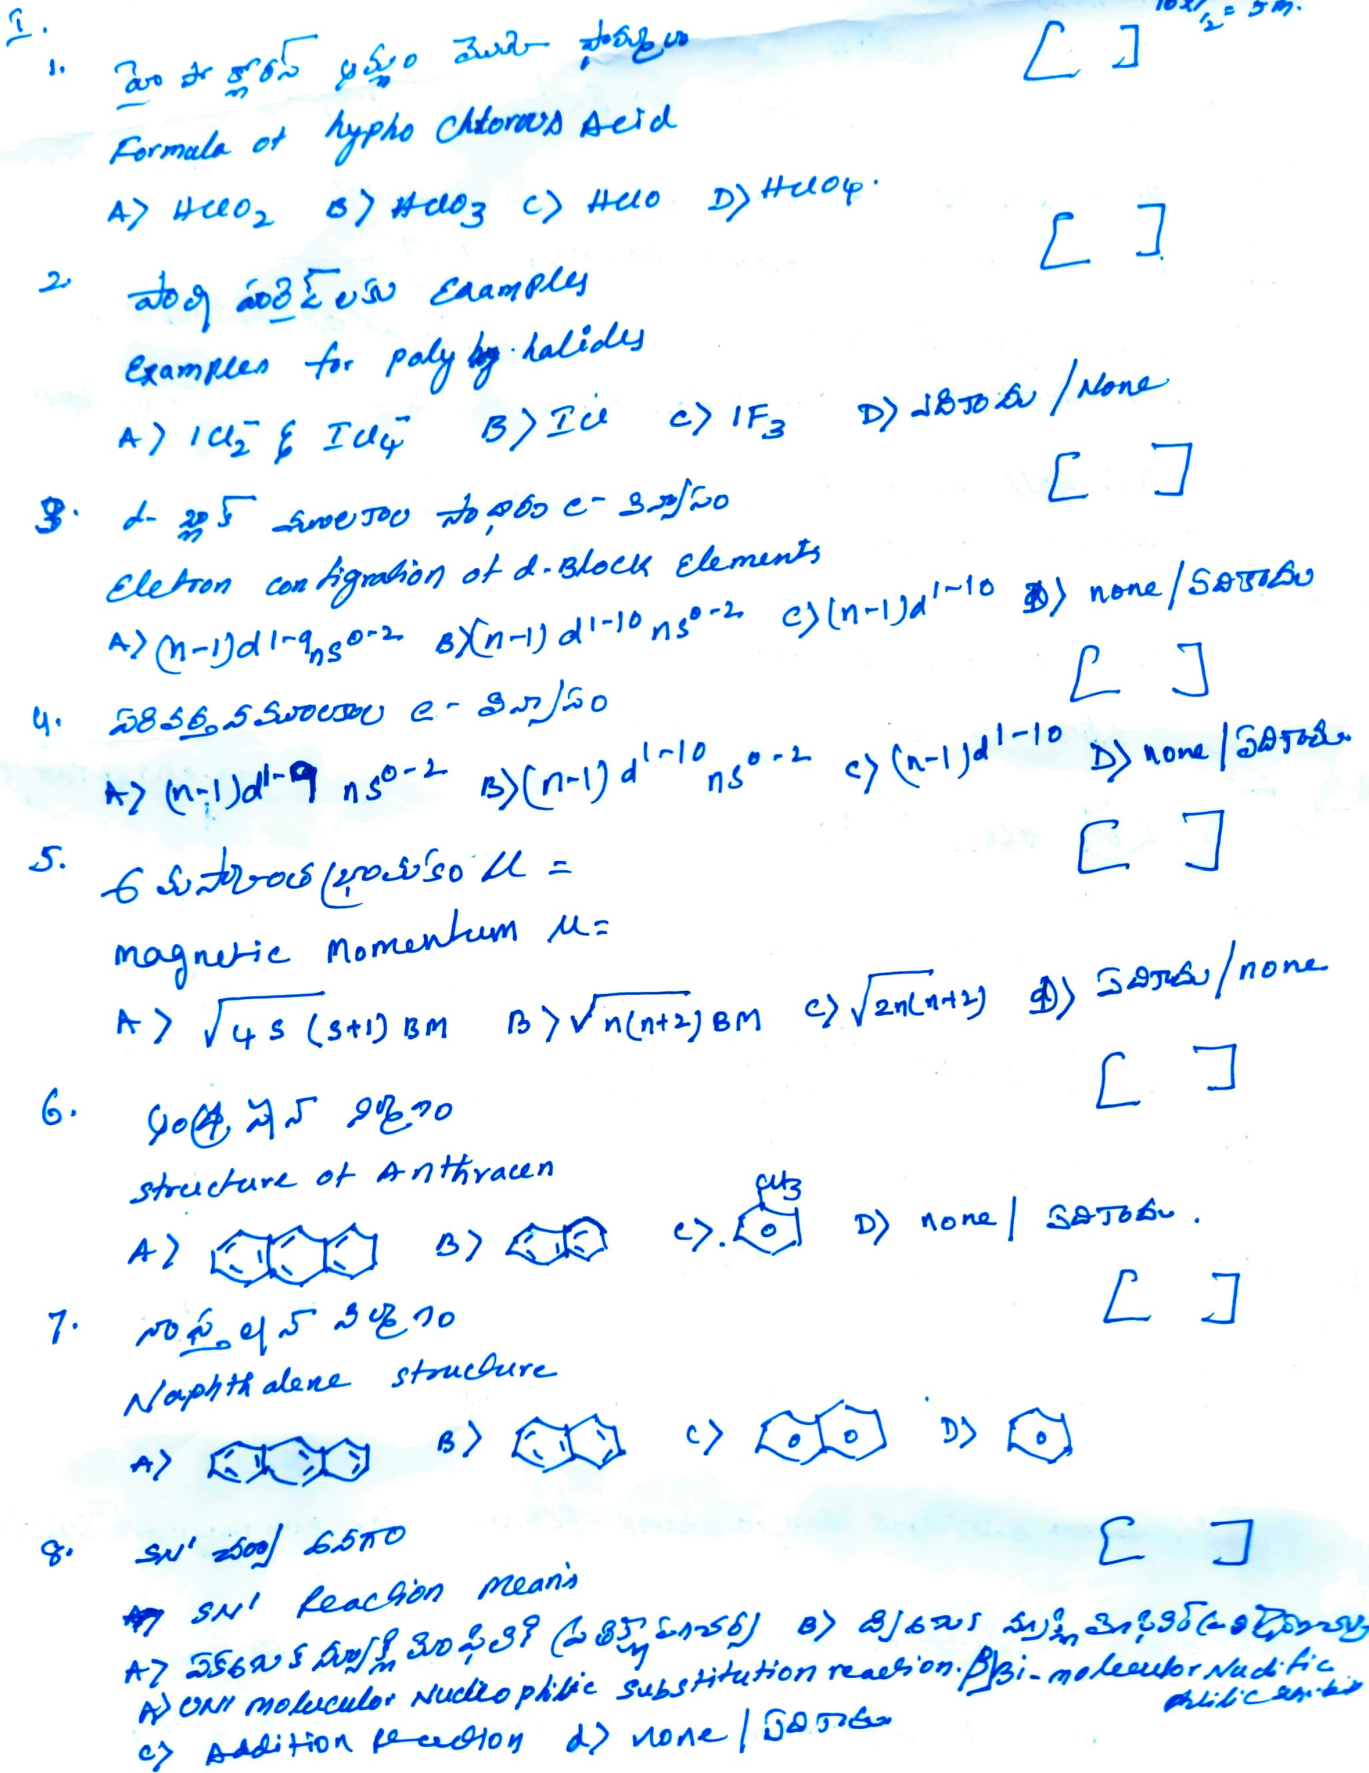 I.
10x1/2 = 5m.
1. హైపో క్లోరస్ ఆమ్లం యొక్క ఫార్ములా [ ]
Formula of hypho chlorous Acid
A) HClO2 B) HClO3 C) HClO D) HClO4.
2. పాలీ హాలైడ్ లకు Examples [ ]
Examples for poly halides
A) ICl2⁻ & ICl4⁻ B) ICl C) IF3 D) ఏదికాదు / None
3. d- బ్లాక్ మూలకాల సాధారణ e- విన్యాసం [ ]
Eletron configration of d-Block Elements
A) (n-1)d1-9 ns0-2 B) (n-1) d1-10 ns0-2 C) (n-1)d1-10 D) none / ఏదికాదు
4. పరివర్తన మూలకాల e- విన్యాసం [ ]
A) (n-1)d1-9 ns0-2 B) (n-1) d1-10 ns0-2 C) (n-1)d1-10 D) none / ఏదికాదు
5. భ్రామకం μ = [ ]
Magnetic Momentum μ=
A) √4s(s+1) BM B) √n(n+2) BM C) √2n(n+2) D) ఏదికాదు / none
6. ఆంత్రసీన్ నిర్మాణం [ ]
structure of Anthracen
A) B) C) CH3 D) none / ఏదికాదు.
7. నాఫ్తలీన్ నిర్మాణం [ ]
Naphthalene structure
A) B) C) D)
8. SN1 చర్య అనగా [ ]
SN1 Reaction means
A) ఏకఅణుక న్యూక్లియోఫిలిక్ ప్రతిక్షేపణ చర్య B) ద్విఅణుక న్యూక్లియోఫిలిక్
A) UNI molucular Nucleophilic substitution reaction. B) Bi-moleculor
C) Addition Reaction d) none / ఏదికాదు